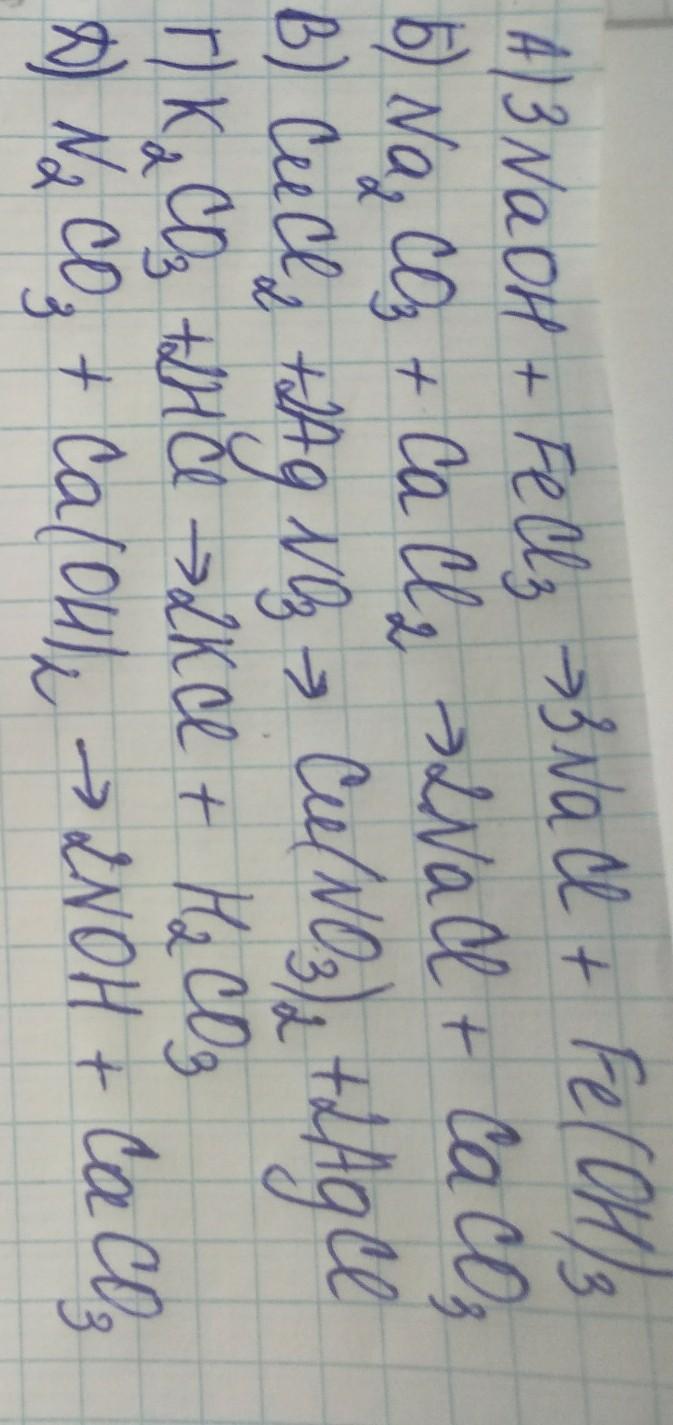 А) 3NaOH + FeCl₃ → 3NaCl + Fe(OH)₃
Б) Na₂CO₃ + CaCl₂ → 2NaCl + CaCO₃
В) CuCl₂ + 2AgNO₃ → Cu(NO₃)₂ + 2AgCl
Г) K₂CO₃ + 2HCl → 2KCl + H₂CO₃
Д) N₂CO₃ + Ca(OH)₂ → 2NOH + CaCO₃